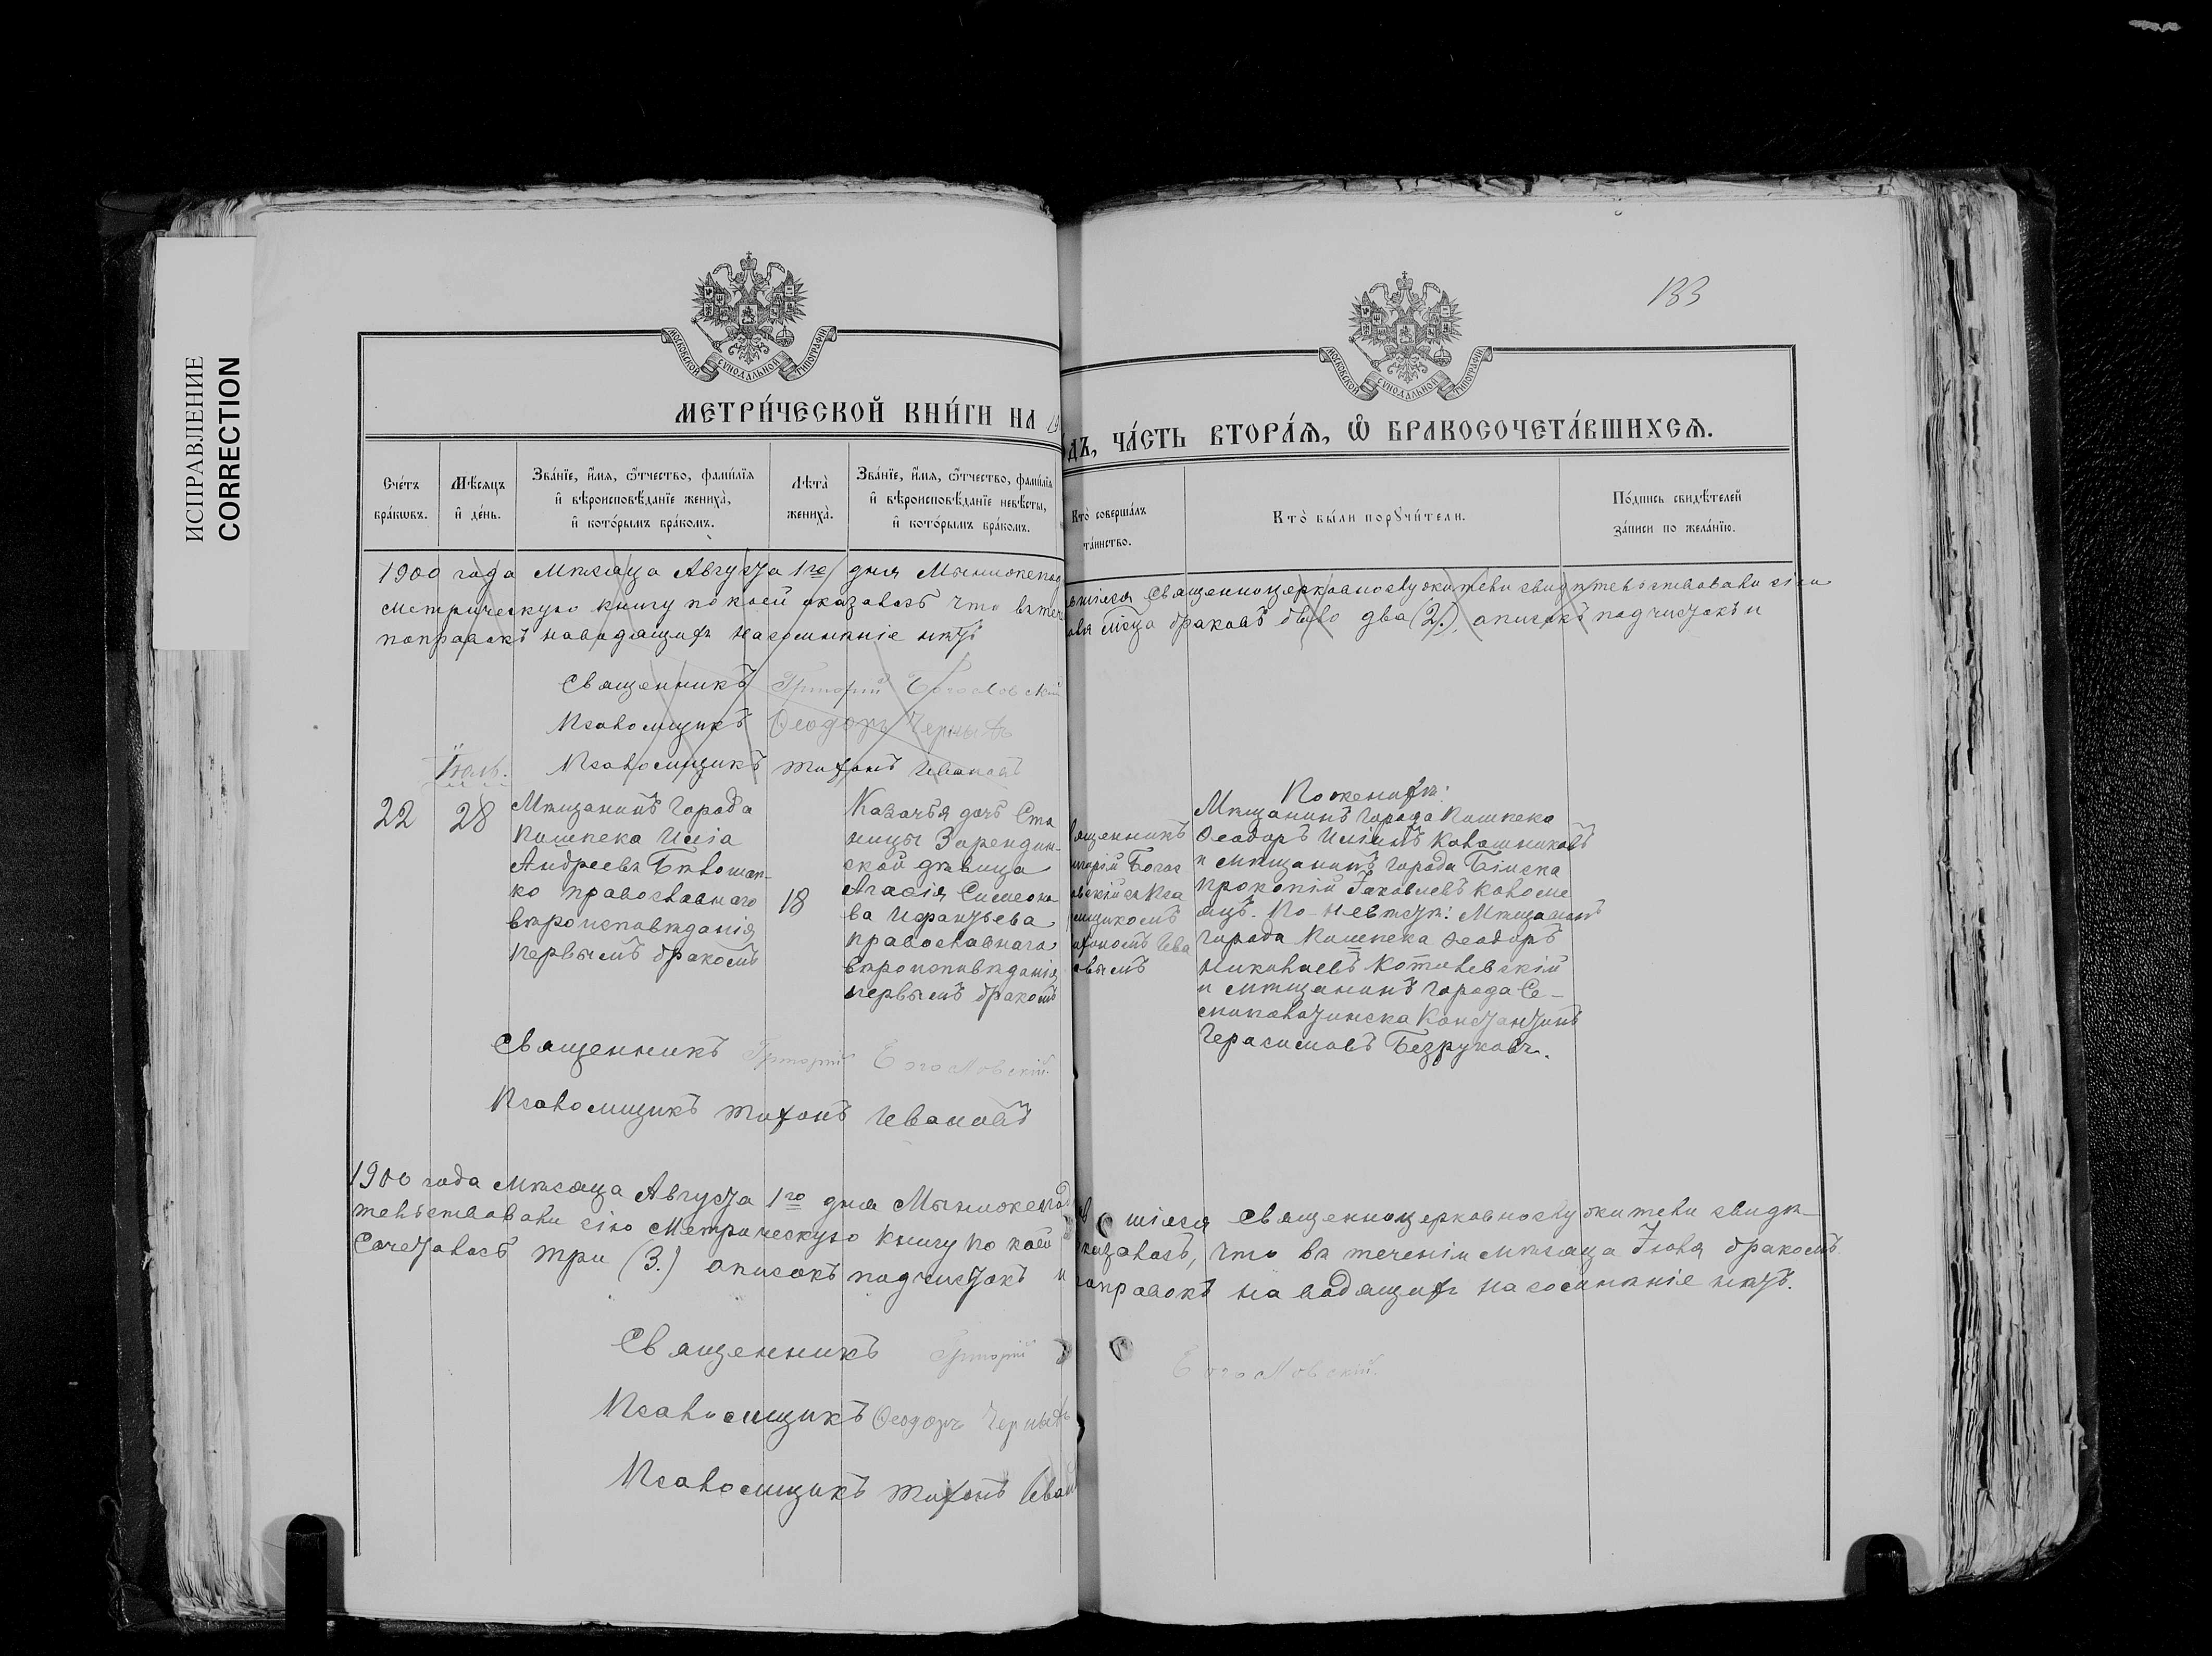 ИСПРАВЛЕНИЕ
CORRECTION
133
МОСКОВСКОЙ СУНОДАЛЬНОЙ ТИПОГРАФІИ
МОСКОВСКОЙ СУНОДАЛЬНОЙ ТИПОГРАФІИ
МЕТРИ́ЧЕСКОЙ КНИ́ГИ НА 19
ДЪ, ЧА́СТЬ ВТОРА́Я, Ѡ БРАКОСОЧЕТА́ВШИХСЯ.
Сче́тъ бра́кѡвъ.
Мѣ́сяцъ и҆ де́нь.
Зва́нїе, и҆́мя, ѻ҆́тчество, фами́лїя и҆ вѣроисповѣ́данїе жениха̀, и҆ кото́рымъ бра́комъ.
Лѣта̀ жениха̀.
Зва́нїе, и҆́мя, ѻ҆́тчество, фами́лїя и҆ вѣроисповѣ́данїе невѣ́сты, и҆ кото́рымъ бра́комъ.
Кто̀ соверша́лъ та́инство.
Кто̀ бы́ли порꙋчи́тели.
По́дпись свидѣ́телей за́писи по жела́нїю.
1900 года Мѣсяца Августа 1го дня Мыниже
шіеся Священноцерковнослужители свидѣтельствовали сію
метрическую книгу по коей оказалось что въ
мѣсяца браковъ было два (2.), описокъ подчистокъ и
поправокъ наводящихъ на сомнѣніе нѣтъ
Священникъ Григорій Богословскій
Псаломщикъ Ѳеодоръ Черныхъ
Псаломщикъ Тихонъ Ивановъ
Іюль.
22
28
Мѣщанинъ города
Пишпека Илія
Андреевъ Бѣлошап-
ко православнаго
вѣроисповѣданія
первымъ бракомъ
18
Казачья дочь Ста
ницы Зарендин-
ской дѣвица
Агаѳія Симеоно-
ва
православнаго
вѣроисповѣданія
первымъ бракомъ
ященникъ
игорій Богос
вскій съ Пса
мщикомъ
ихономъ Ива
овымъ
По женихѣ:
Мѣщанинъ города Пишпека
Ѳеодоръ Иліинъ Калашниковъ
и мѣщанинъ города Бійска
Прокопій Іаковлевъ Коломе
ецъ. По-невѣстѣ: Мѣщанинъ
города Пишпека Ѳеодоръ
Николаевъ Котилевскій
и мѣщанинъ города Се-
мипалатинска Константинъ
Герасимовъ Безруковъ.
Священникъ Григорій Богословскій
Псаломщикъ Тихонъ Ивановъ
1900 года мѣсяца Августа 1го дня Мынижепод
шіеся Священноцерковнослужители свидѣ-
тельствовали сію Метрическую Книгу по коей
казалось, что въ теченіи мѣсяца Іюля бракомъ
Сочеталось три (3.) описокъ подчистокъ и
поправокъ наводящихъ на сомнѣніе нѣтъ.
Священникъ Григорій Богословскій
Псаломщикъ Ѳеодоръ Черныхъ
Псаломщикъ Тихонъ Иван